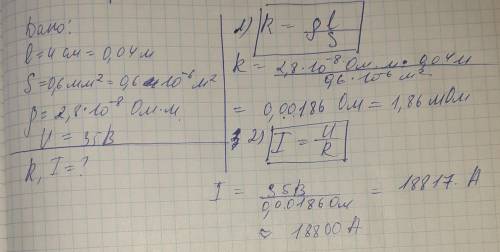 Дано:
l = 4 см = 0,04 м
S = 0,6 мм² = 0,6 · 10⁻⁶ м²
ρ = 2,8 · 10⁻⁸ Ом · м
U = 35 В
R, I = ?
1) R = ρl/S
R = 2,8 · 10⁻⁸ Ом · м · 0,04 м / 0,6 · 10⁻⁶ м²
= 0,00186 Ом = 1,86 мОм
2) I = U/R
I = 35 В / 0,00186 Ом = 18817 А
≈ 18800 А